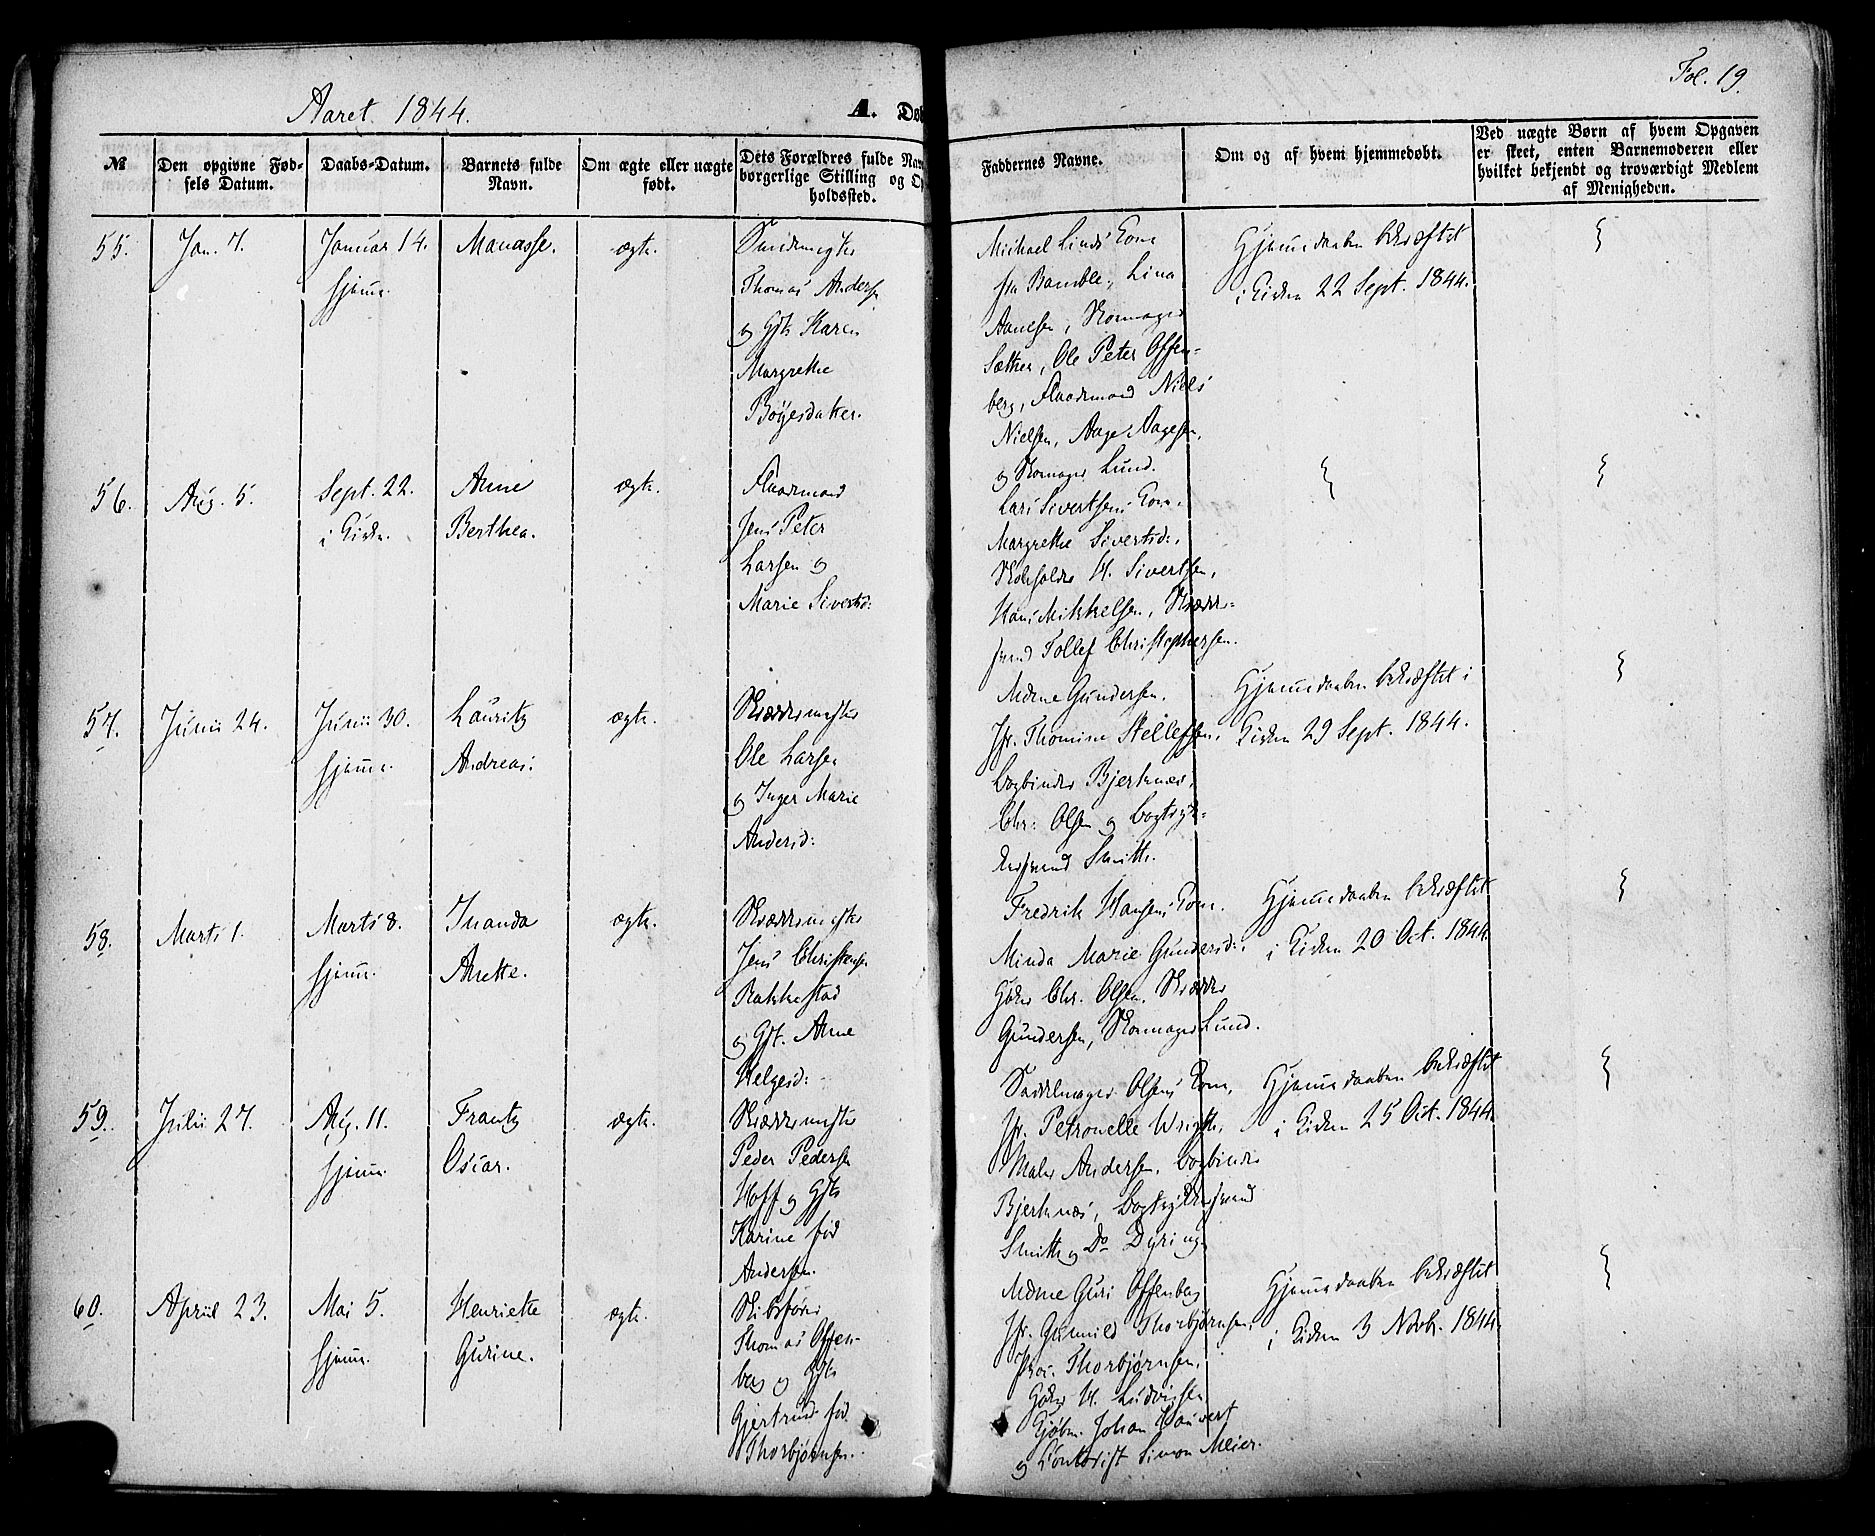 Aaret 1844.
A. Døb
Fol. 19.
№
Den opgivne Fødsels Datum.
Daabs-Datum.
Barnets fulde Navn.
Om ægte eller uægte født.
Dets Forældres fulde Nav
borgerlige Stilling og Op
holdssted.
Faddernes Navne.
Om og af hvem hjemmedøbt.
Ved uægte Børn af hvem Opgaven
er skeet, enten Barnemoderen eller
hvilket bekjendt og troværdigt Medlem
af Menigheden.
55.
Jan. 7.
Januar 14.
hjemme.
Manasse.
ægte.
Thomas Anders
og Gjts Karen
Margrethe
Böyesdatter.
Michael Linds Kone
fra Bamble, Lina
Skomager
Sæther, Ole Peter Offen-
berg, Niels
Nielsen, Aage Aagesen,
og Skomager Lund.
Hjemmedaaben bekræftet
i Kirken 22 Sept. 1844.
56.
Aug. 5.
Sept. 22.
i Kirken.
Anne
Berthea.
ægte.
Jens Peter
Larsen og
Marie Sivertsd:
Lars Sivertsens Kone.
Margrethe Sivertsd:,
H. Sivertsen,
Hans Mikkelsen, Skrædder-
svend Tollef Christophersen.
57.
Junii 24.
Junii 30.
hjemme.
Lauritz
Andreas.
ægte.
Skræddermester
Ole Larsen
og Inger Marie
Andersd:
Mdme Gundersen.
Jfr. Thomine Stellefsen,
Bogbinder Bjerknæs,
Chr. Olsen og Bogtryk-
kersvend Smith.
Hjemmedaaben bekræftet i
Kirken 29 Sept. 1844.
58.
Marts 1.
Marts 8.
hjemme.
Inanda
Anette.
ægte.
Skræddermester
Jens Christensen
Rakkestad
og Gjt. Anne
Helgesd:
Fredrik Hansens Kone.
Minda Marie Gundersd:,
Chr. Olsen, Skrædder
Gundersen, Skomager Lund.
Hjemmedaaben bekræftet
i Kirken 20 Oct. 1844.
59.
Julii 27.
Aug. 11.
hjemme.
Frantz
Oscar.
ægte.
Skræddermester
Peder Pedersen
Hoff og Gjts
Karine fød
Andersen.
Sadelmager Olsens Kone,
Jfr. Petronelle Wright,
Maler Andersen, Bogbinder
Bjerknæs, Bogtrykkersvend
Smith og Do Dyring.
Hjemmedaaben bekræftet
i Kirken 25 Oct. 1844.
60.
April 23.
Mai 5.
hjemme.
Henriette
Gurine.
ægte.
Skibsfører
Thomas Offen-
berg og Gjts
Gjertrud fød
Thorbjørnsen.
Mdme Guri Offenberg
Jfr. Gunnild Thorbjørnsen,
Thorbjørnsen,
H. Ludvigsen
Kjøbm. Johan
og Simon Meier.
Hjemmedaaben bekræftet
i Kirken 3 Novbr. 1844.